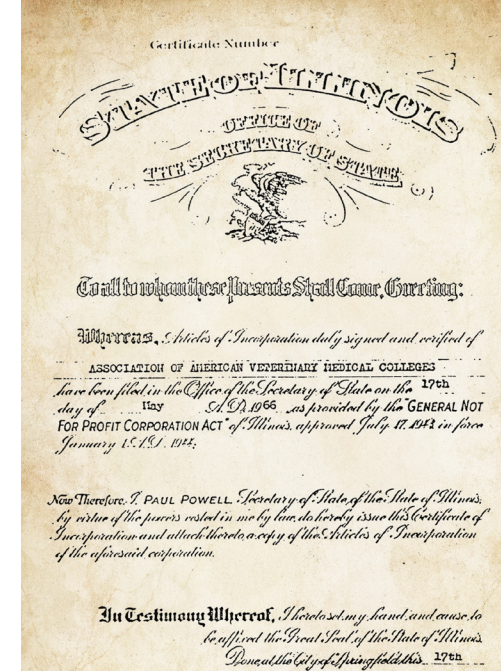 Certificate Number
STATE OF ILLINOIS
OFFICE OF
THE SECRETARY OF STATE
To all to whom these Presents Shall Come, Greeting:
Whereas, Articles of Incorporation duly signed and verified of
ASSOCIATION OF AMERICAN VETERINARY MEDICAL COLLEGES
have been filed in the Office of the Secretary of State on the 17th
day of May A.D. 1966 as provided by the "GENERAL NOT
FOR PROFIT CORPORATION ACT" of Illinois, approved July 17, 1943, in force
January 1, A.D. 1944;
Now Therefore, I, PAUL POWELL, Secretary of State, of the State of Illinois,
by virtue of the powers vested in me by law, do hereby issue this Certificate of
Incorporation and attach thereto a copy of the Articles of Incorporation
of the aforesaid corporation.
In Testimony Whereof, I hereto set my hand and cause to
be affixed the Great Seal of the State of Illinois.
Done at the City of Springfield this 17th